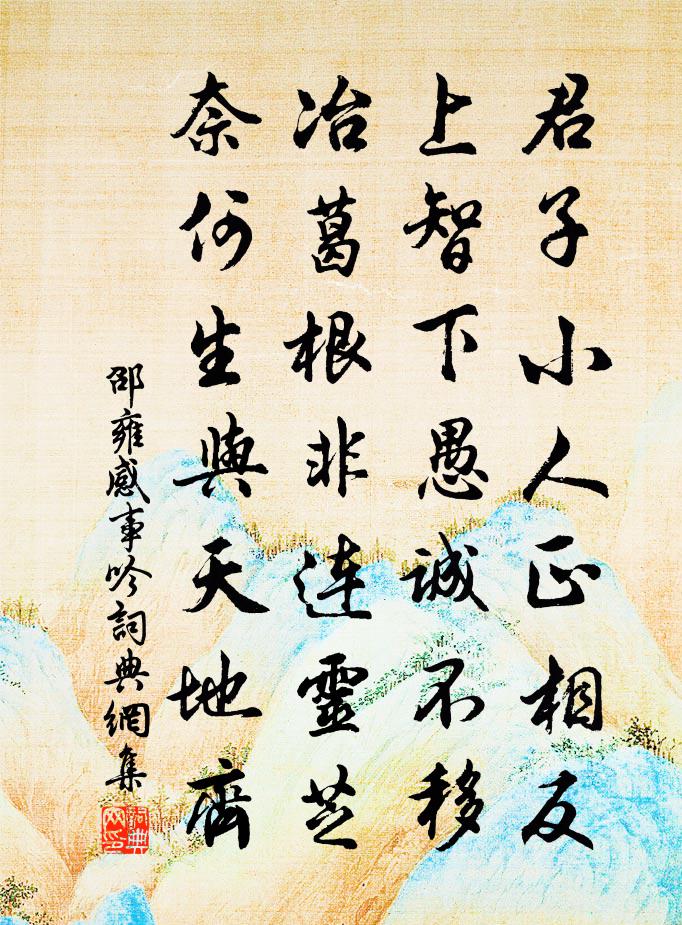 君子小人正相反
上智下愚誠不移
冶葛根非連靈芝
奈何生與天地齊
邵雍感事吟詞典網集
詞典
网印